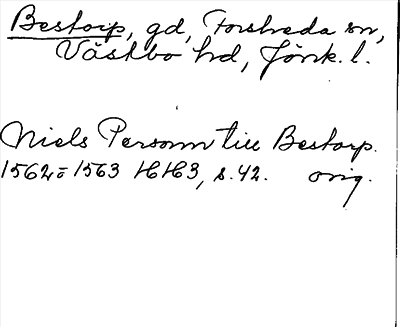 Bestorp, gd, Forsheda sn,
Västbo hd, Jönk. l.
Niels Personn till Bestorp.
1562=1563 HH3, s. 42. orig.